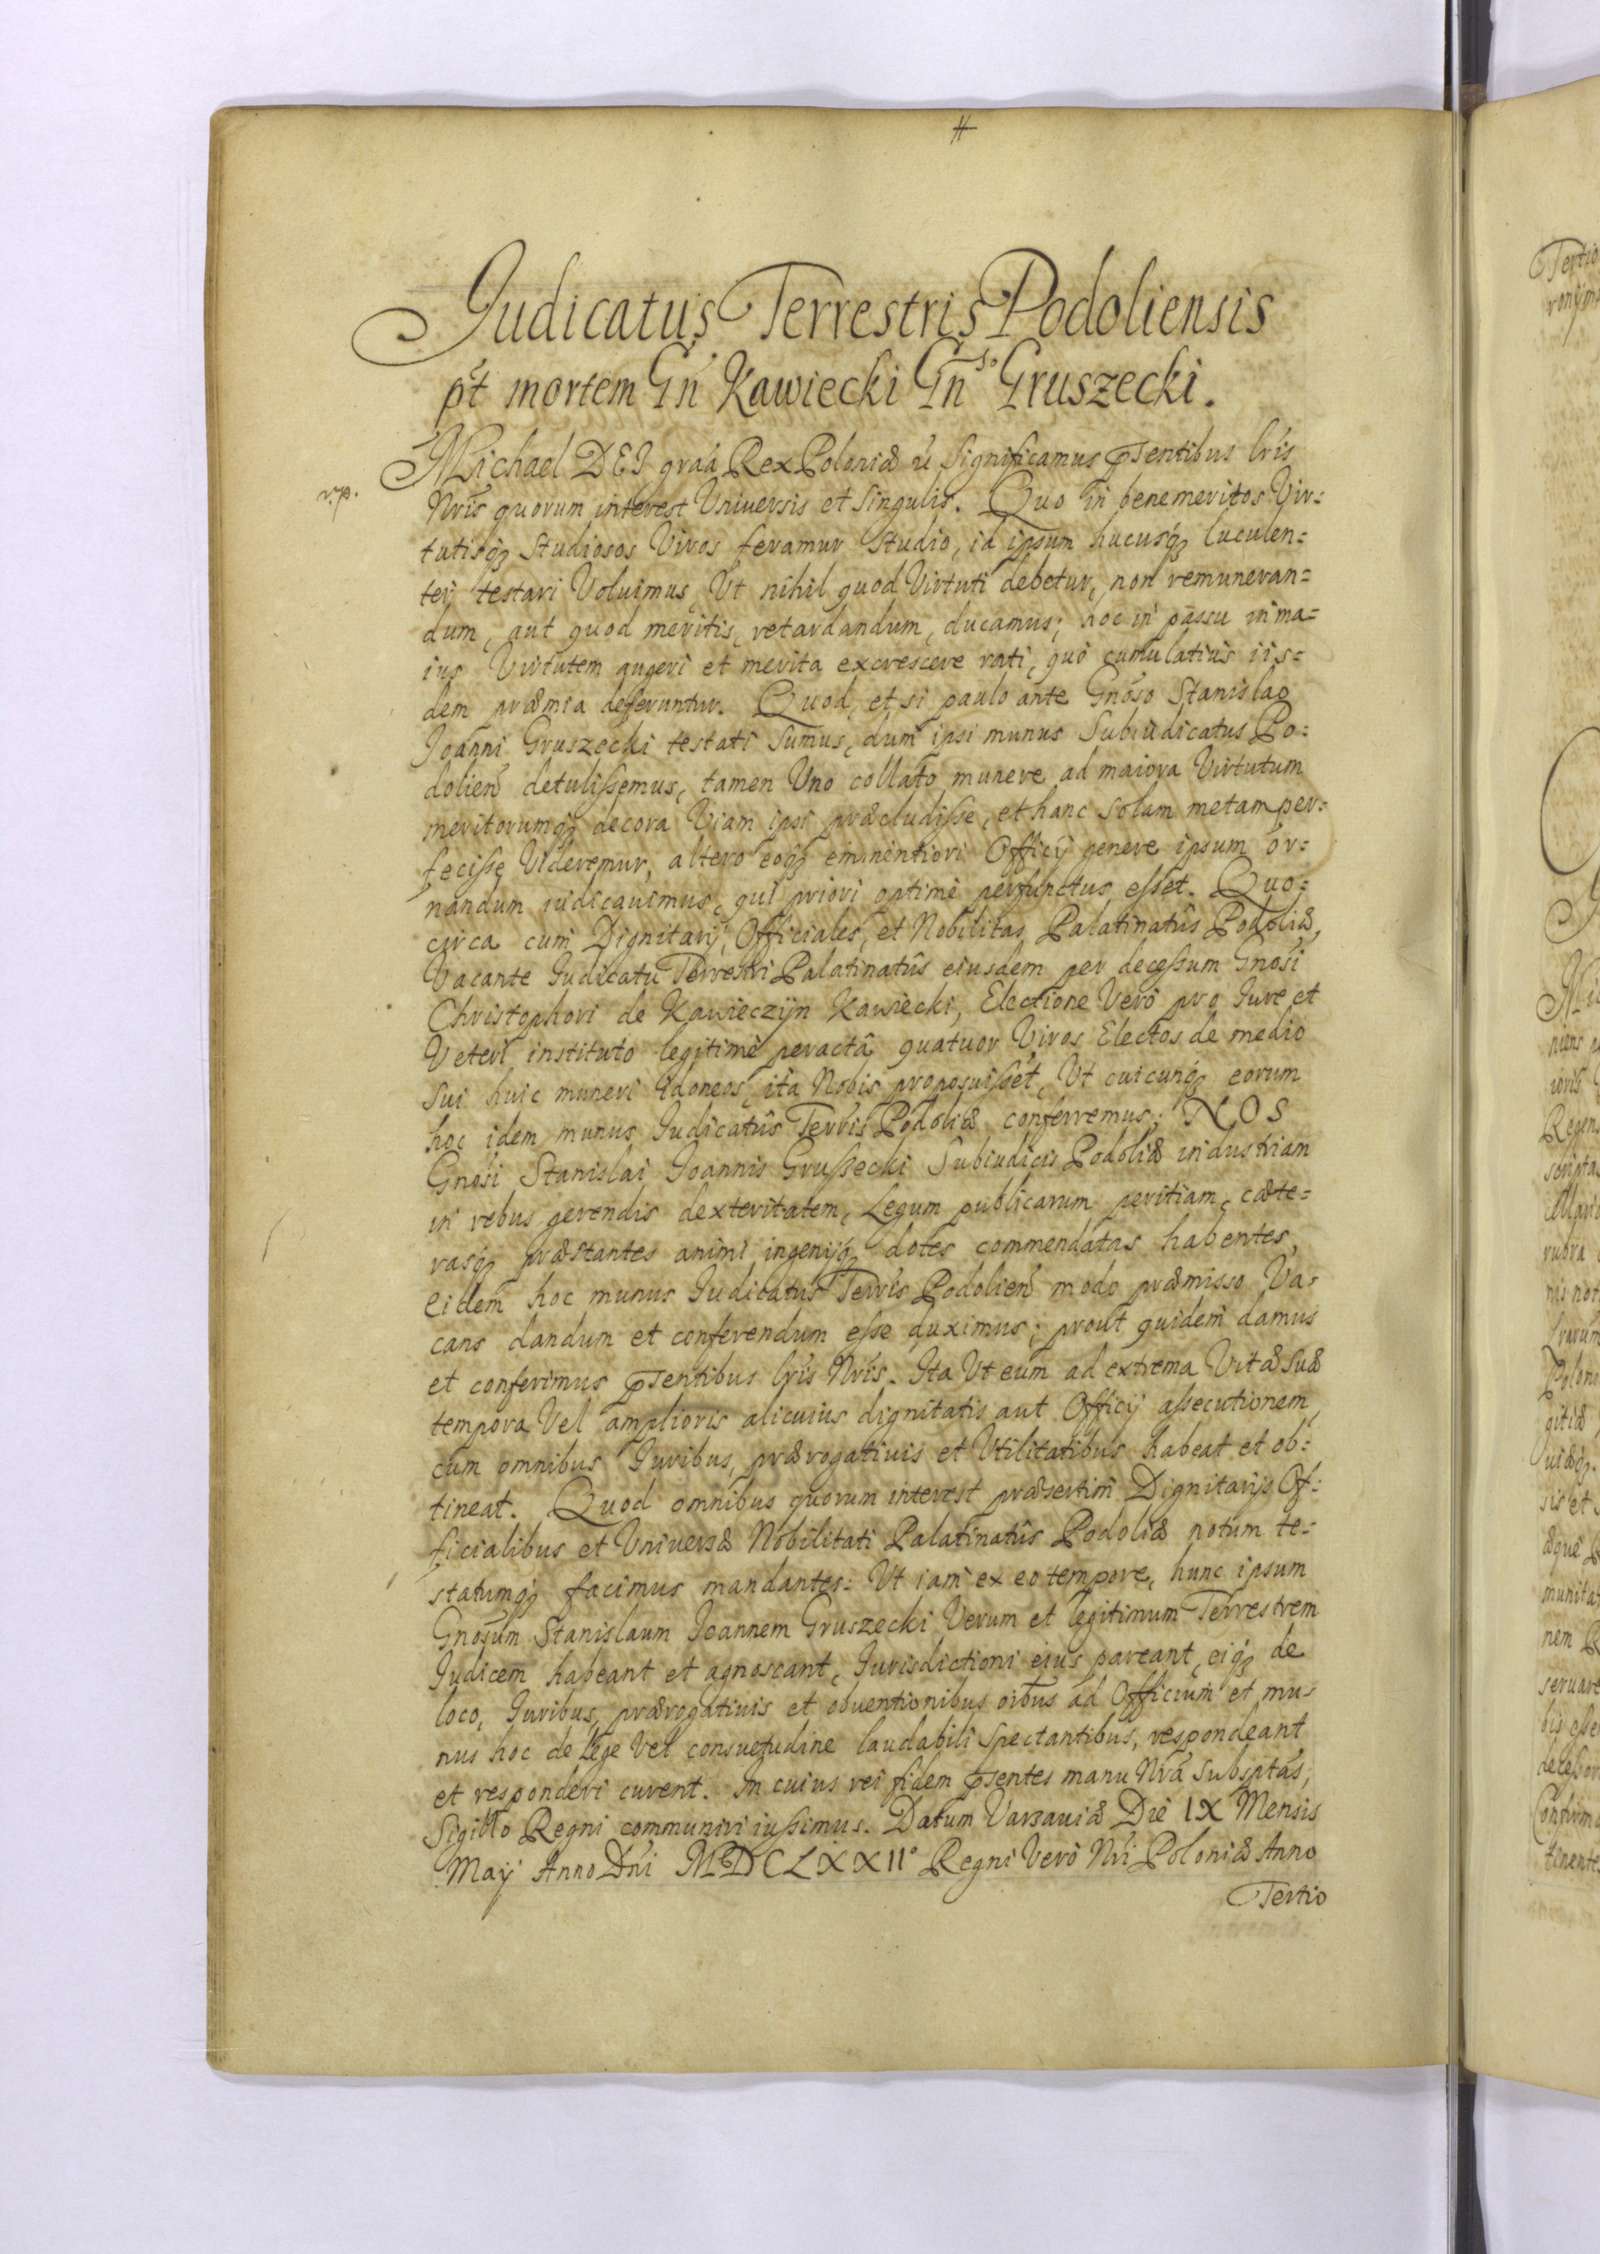 Judicatus Terrestris Podoliensis
pt mortem Gn Kawiecki Gnso Gruszecki.
Michael DEI graâ Rex Poloniæ significamus psentibus lris
Nris quorum interest Universis et singulis. Quo in benemeritos Vir=
tutisq3 studiosos Viros feramur studio, id ipsum hucusq3 luculen=
ter testari Voluimus, Ut nihil quod Virtuti debetur, non remuneran=
dum, aut quod meritis, retardandum, ducamus; hoc in passu in ma=
ius Virtutem augeri et merita excrescere rati, quò cumulatius iis=
dem præmia deferuntur. Quod, et si paulo ante Gnoso Stanislao
Joanni Gruszecki testati sumus, dum ipsi munus Subiudicatus Po=
dolien detulissemus, tamen Uno collato munere ad maiora Virtutum
meritorumq3 decora Viam ipsi præcludisse, et hanc solam metam per=
fecisse Videremur, altero eoq3 eminentiori Officij genere ipsum or=
nandum iudicauimus, qui priori optimè perfunctus esset. Quo=
circa cum Dignitarij, Officiales, et Nobilitas Palatinatûs Podoliæ,
Vacante Judicatu Terrestri Palatinatûs eiusdem per decessum Gnosi
Christophori de Kawieczyn Kawiecki, Electione Verò pro Jure et
Veteri instituto legitimè peractâ quatuor Viros Electos de medio
sui huic muneri idoneos, ita Nobis proposuisset, Ut cuicunq3 eorum
hoc idem munus Judicatûs Terris Podoliæ conferremus; NOS
Gnosi Stanislai Joannis Grussecki Subiudicis Podoliæ industriam
in rebus gerendis dexteritatem, Legum publicarum peritiam, cæte=
rasq3 præstantes animi ingenijq3 dotes commendatas habentes,
eidem hoc munus Judicatus Terris Podolien modo præmisso Va=
cans dandum et conferendum esse duximus; prout quidem damus
et conferimus psentibus lris Nris. Ita Ut eum ad extrema Vitæ suæ
tempora Vel amplioris alicuius dignitatis aut Officij assecutionem,
cum omnibus Juribus, prærogatiuis et Utilitatibus habeat et ob=
tineat. Quod omnibus quorum interest præsertim Dignitarijs Of=
ficialibus et Universæ Nobilitati Palatinatûs Podoliæ notum te=
statumq3 facimus mandantes: Ut iam ex eo tempore, hunc ipsum
Gnosum Stanislaum Joannem Gruszecki Verum et legitimum Terrestrem
Judicem habeant et agnoscant, Jurisdictioni eius pareant, eiq3 de
loco, Juribus, prærogatiuis et obuentionibus oibus ad Officium et mu=
nus hoc de lege Vel consuetudine laudabili spectantibus, respondeant
et responderi curent. In cuius rei fidem psentes manu Nrâ subsptas,
Sigillo Regni communiri iussimus. Datum Varsauiæ Die IX Mensis
Maij Anno Dni MDCLXXII° Regni Verò Nri Poloniæ Anno
Tertio